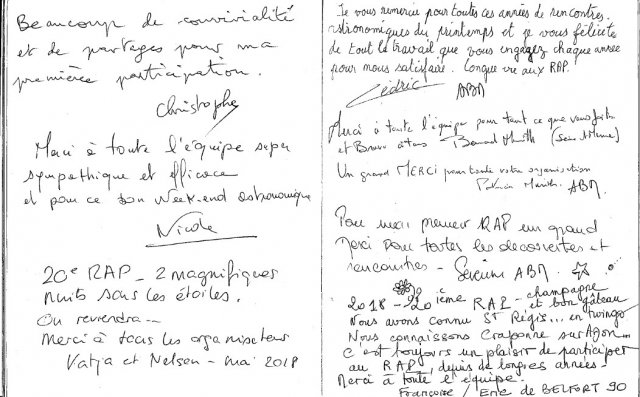 Beaucoup de convivialité
et de partages pour ma
première participation.
Christophe
Merci à toute l'équipe super
sympathique et efficace
et pour ce bon week-end astronomique
Nicole
20e RAP - 2 magnifiques
nuits sous les étoiles.
On reviendra --
Merci à tous les organisateurs
Katja et Nelson - mai 2018
Je vous remercie pour toutes ces années de rencontres
astronomiques du printemps et je vous félicite
de tout le travail que vous engagez chaque année
pour nous satisfaire. Longue vie aux RAP.
Cédric ABN
Merci à toute l'équipe pour tant ce que vous faites
et Bravo à tous Bernard (Seine & Marne)
Un grand MERCI pour toute votre organisation
ABN
Pour mon premier RAP un grand
merci pour toutes les découvertes et
rencontres - Séverine ABN
2018 - 20ième RAP - champagne
et bon gâteau
Nous avons connu St Régis... en twingo
Nous connaissons Craponne sur Arzon...
C'est toujours un plaisir de participer
au RAP, depuis de longues années.
Merci à toute l'équipe.
Françoise / Eric de BELFORT 90